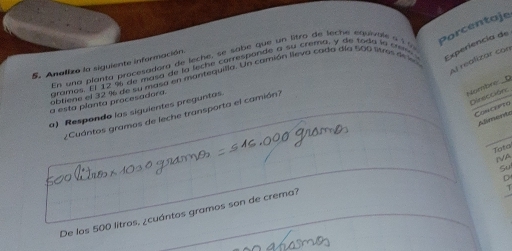 5. Analizo la siguiente información.
En una planta procesadora de leche, se sabe que un litro de leche equivale a 1
gramos. El 12 % de masa de la leche corresponde a su crema, y de toda la crema
obtiene el 32 % de su masa en mantequilla. Un camión lleva cada día 500 litros de
a esta planta procesadora.
a) Respondo las siguientes preguntas.
¿Cuántos gramos de leche transporta el camión?
500 litros x 1030 gramos = 515.000 gramos
De los 500 litros, ¿cuántos gramos son de crema?
gramos
Porcentaje
Experiencia de
Al realizar com
Nombre
Dirección:
Concepto
Alimento
Tota
IVA